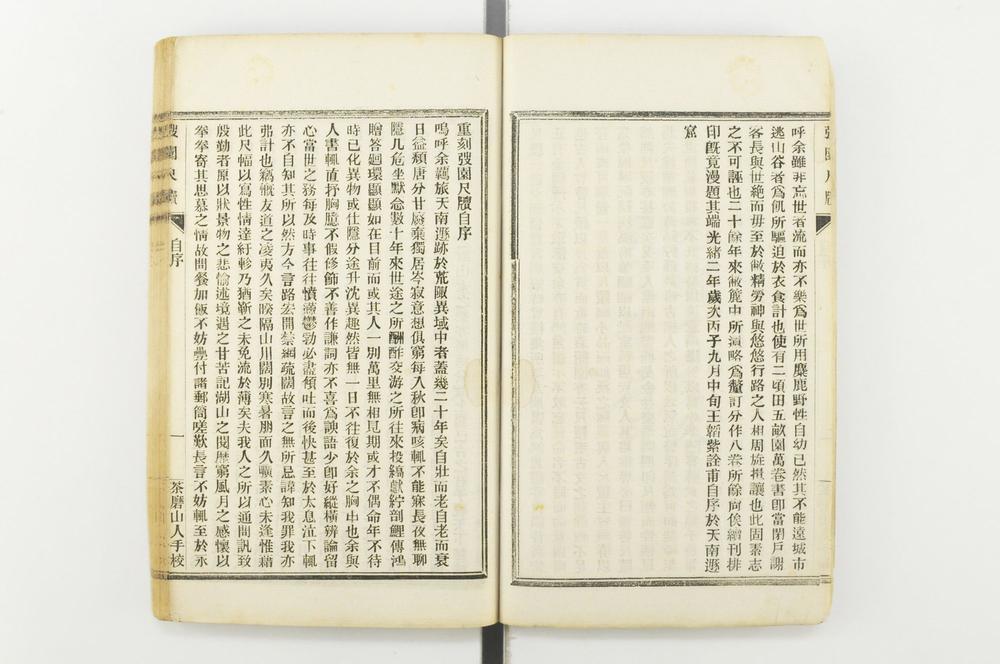 弢園尺牘
呼余雖非忘世者流而亦不樂爲世所用麋鹿野性自幼已然其不能遠城市
逃山谷者爲飢所驅迫於衣食計也使有二頃田五畝園萬卷書卽當閉戶謝
客長與世絕而毋至於敝精勞神與悠悠行路之人相周旋揖讓也此固素志
之不可誣也二十餘年來敝簏中所積略爲釐訂分作八卷所餘尙俟續刊排
印旣竟漫題其端光緖二年歲次丙子九月中旬王韜紫詮甫自序於天南遯
窟
重刻弢園尺牘自序
嗚呼余羈旅天南遯跡於荒陬異域中者蓋幾二十年矣自壯而老自老而衰
日益頹唐分甘廢棄獨居岑寂意想俱窮每入秋卽病咳輒不能寐長夜無聊
隱几危坐默念數十年來世途之所酬酢交游之所往來投縞獻紵剖鯉傳鴻
贈答迴環顯顯如在目前而或其人一別萬里無相見期或才不偶命年不待
時已化異物或仕隱分途升沈異趣然皆無一日不往復於余之胸中也余與
人書輒直抒胸臆不假修飾不善作謙詞亦不喜爲諛語少卽好縱橫辨論留
心當世之務每及時事往往憤懣鬱勃必盡傾吐而後快甚至於太息泣下輒
亦不自知其所以然方今言路宏開禁網疏闊故言之無所忌諱知我罪我亦
弗計也竊慨友道之凌夷久矣暌隔山川闊別寒暑朋而久曠素心未逢惟藉
此尺幅以寫性情達紆軫乃猶靳之未免流於薄矣夫我人之所以通問訊致
殷勤者原以狀景物之悲愉述境遇之甘苦記湖山之閱歷窮風月之感懷以
拳拳寄其思慕之情故問餐加飯不妨疊付諸郵筒嗟歎長言不妨輒至於永
弢園尺牘 自序 一 茶磨山人手校